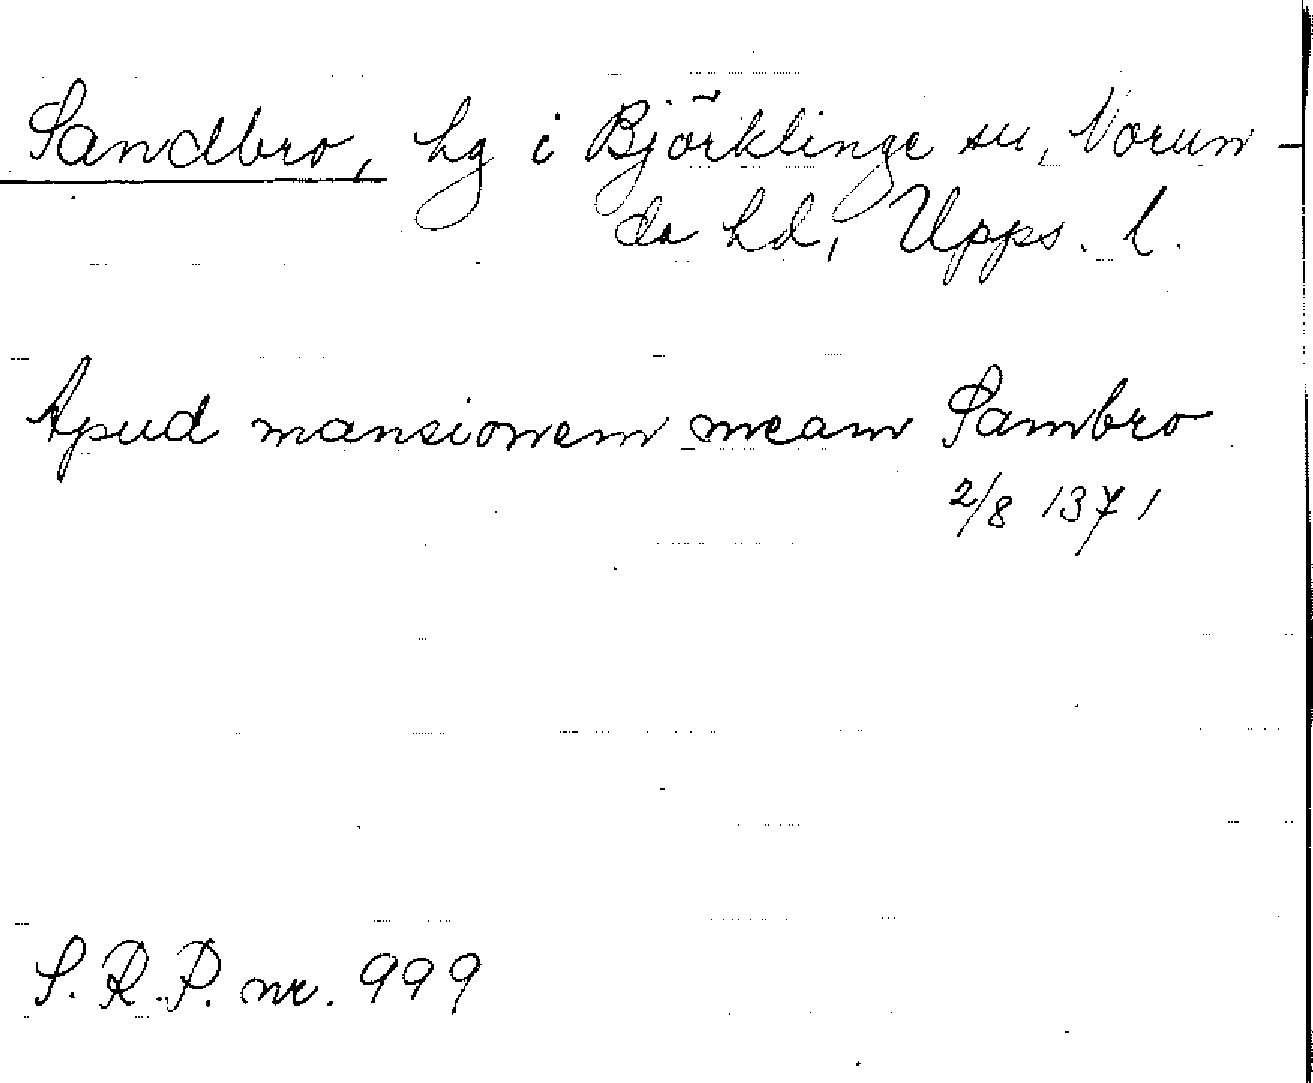 Sandbro, hg i Björklinge sn, Norun-
da hd, Upps. l.
Apud mansionem meam Sambro
2/8 1371
S.R.P. nr. 999